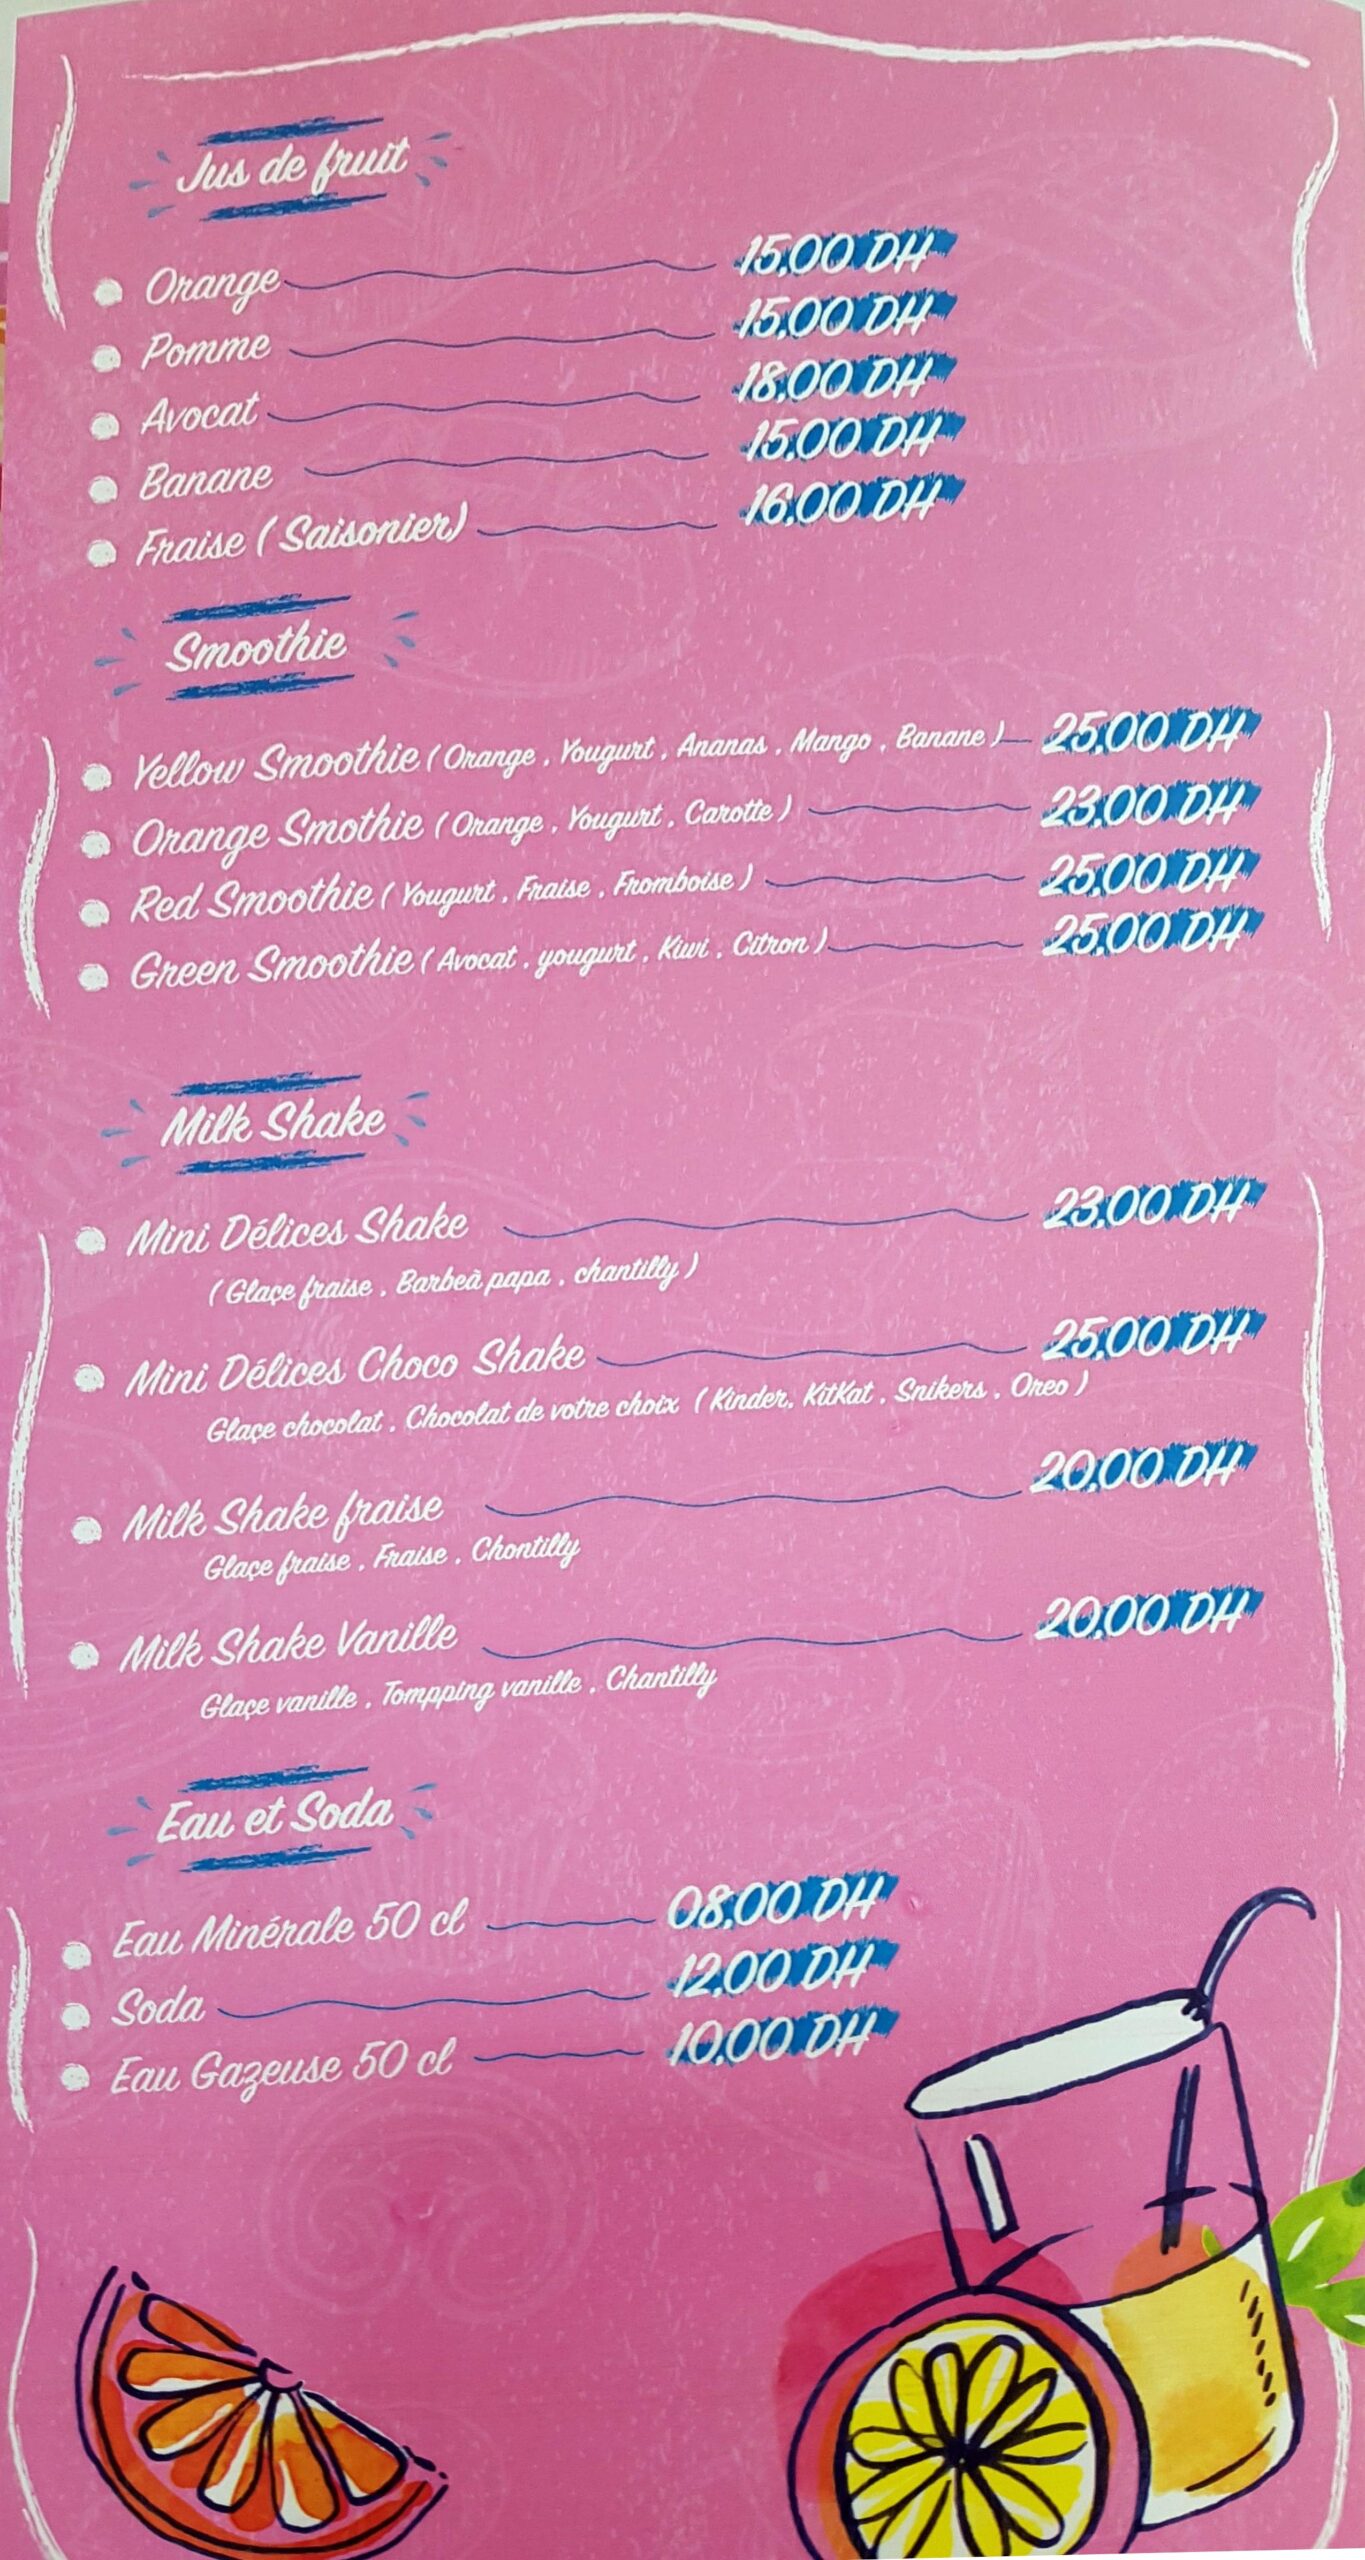 Jus de fruit
Orange 15,00 DH
Pomme 15,00 DH
Avocat 18,00 DH
Banane 15,00 DH
Fraise ( Saisonier) 16,00 DH
Smoothie
Yellow Smoothie ( Orange , Yougurt , Ananas , Mango , Banane ) 25,00 DH
Orange Smothie ( Orange , Yougurt , Carotte ) 23,00 DH
Red Smoothie ( Yougurt , Fraise , Fromboise ) 25,00 DH
Green Smoothie ( Avocat , yougurt , Kiwi , Citron ) 25,00 DH
Milk Shake
Mini Délices Shake 23,00 DH
( Glaçe fraise , Barbeà papa , chantilly )
Mini Délices Choco Shake 25,00 DH
Glaçe chocolat , Chocolat de votre choix ( Kinder, KitKat , Snikers , Oreo )
Milk Shake fraise 20,00 DH
Glaçe fraise , Fraise , Chontilly
Milk Shake Vanille 20,00 DH
Glaçe vanille , Tompping vanille , Chantilly
Eau et Soda
Eau Minérale 50 cl 08,00 DH
Soda 12,00 DH
Eau Gazeuse 50 cl 10,00 DH